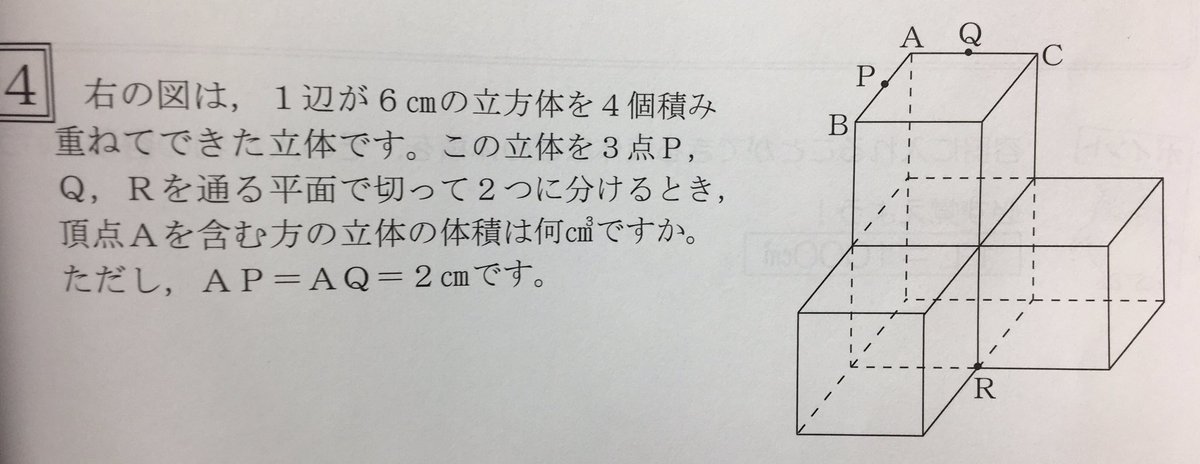 4
右の図は，１辺が６㎝の立方体を４個積み
重ねてできた立体です。この立体を３点Ｐ，
Ｑ，Ｒを通る平面で切って２つに分けるとき，
頂点Ａを含む方の立体の体積は何㎤ですか。
ただし，ＡＰ＝ＡＱ＝２㎝です。
A
Q
C
P
B
R